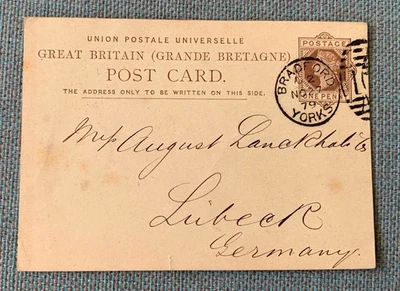 UNION POSTALE UNIVERSELLE
GREAT BRITAIN (GRANDE BRETAGNE)
POST CARD.
THE ADDRESS ONLY TO BE WRITTEN ON THIS SIDE.
POSTAGE
ONE PENNY
BRADFORD
NO
79
YORKS
August
Lübeck
Germany.